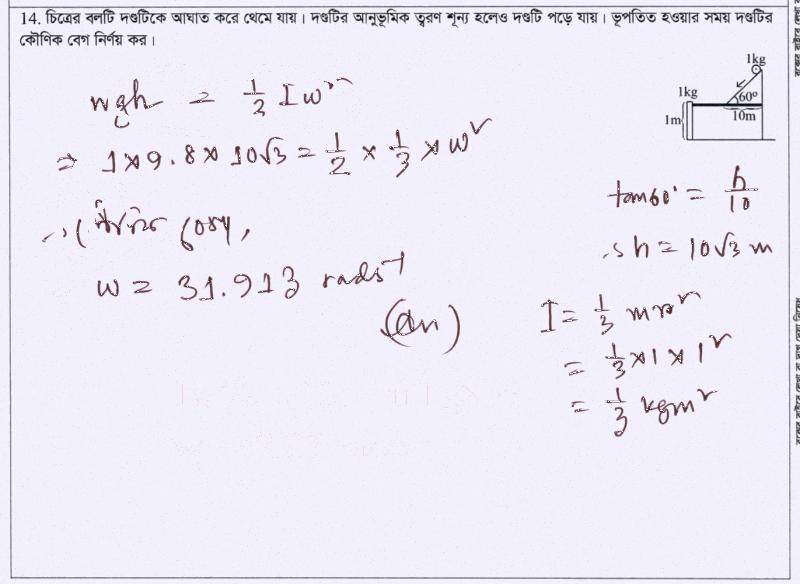 14. চিত্রের বলটি দণ্ডটিকে আঘাত করে থেমে যায়। দণ্ডটির আনুভূমিক ত্বরণ শূন্য হলেও দণ্ডটি পড়ে যায়। ভূপতিত হওয়ার সময় দণ্ডটির
কৌণিক বেগ নির্ণয় কর।
1kg
1kg
60°
1m
10m
mgh = 1/2 Iω²
⇒ 1×9.8×10√3 = 1/2 × 1/3 × ω²
ω = 31.913 rads⁻¹
(Ans)
tan60° = h/10
∴ h = 10√3 m
I = 1/3 mr²
= 1/3 ×1×1²
= 1/3 kgm²